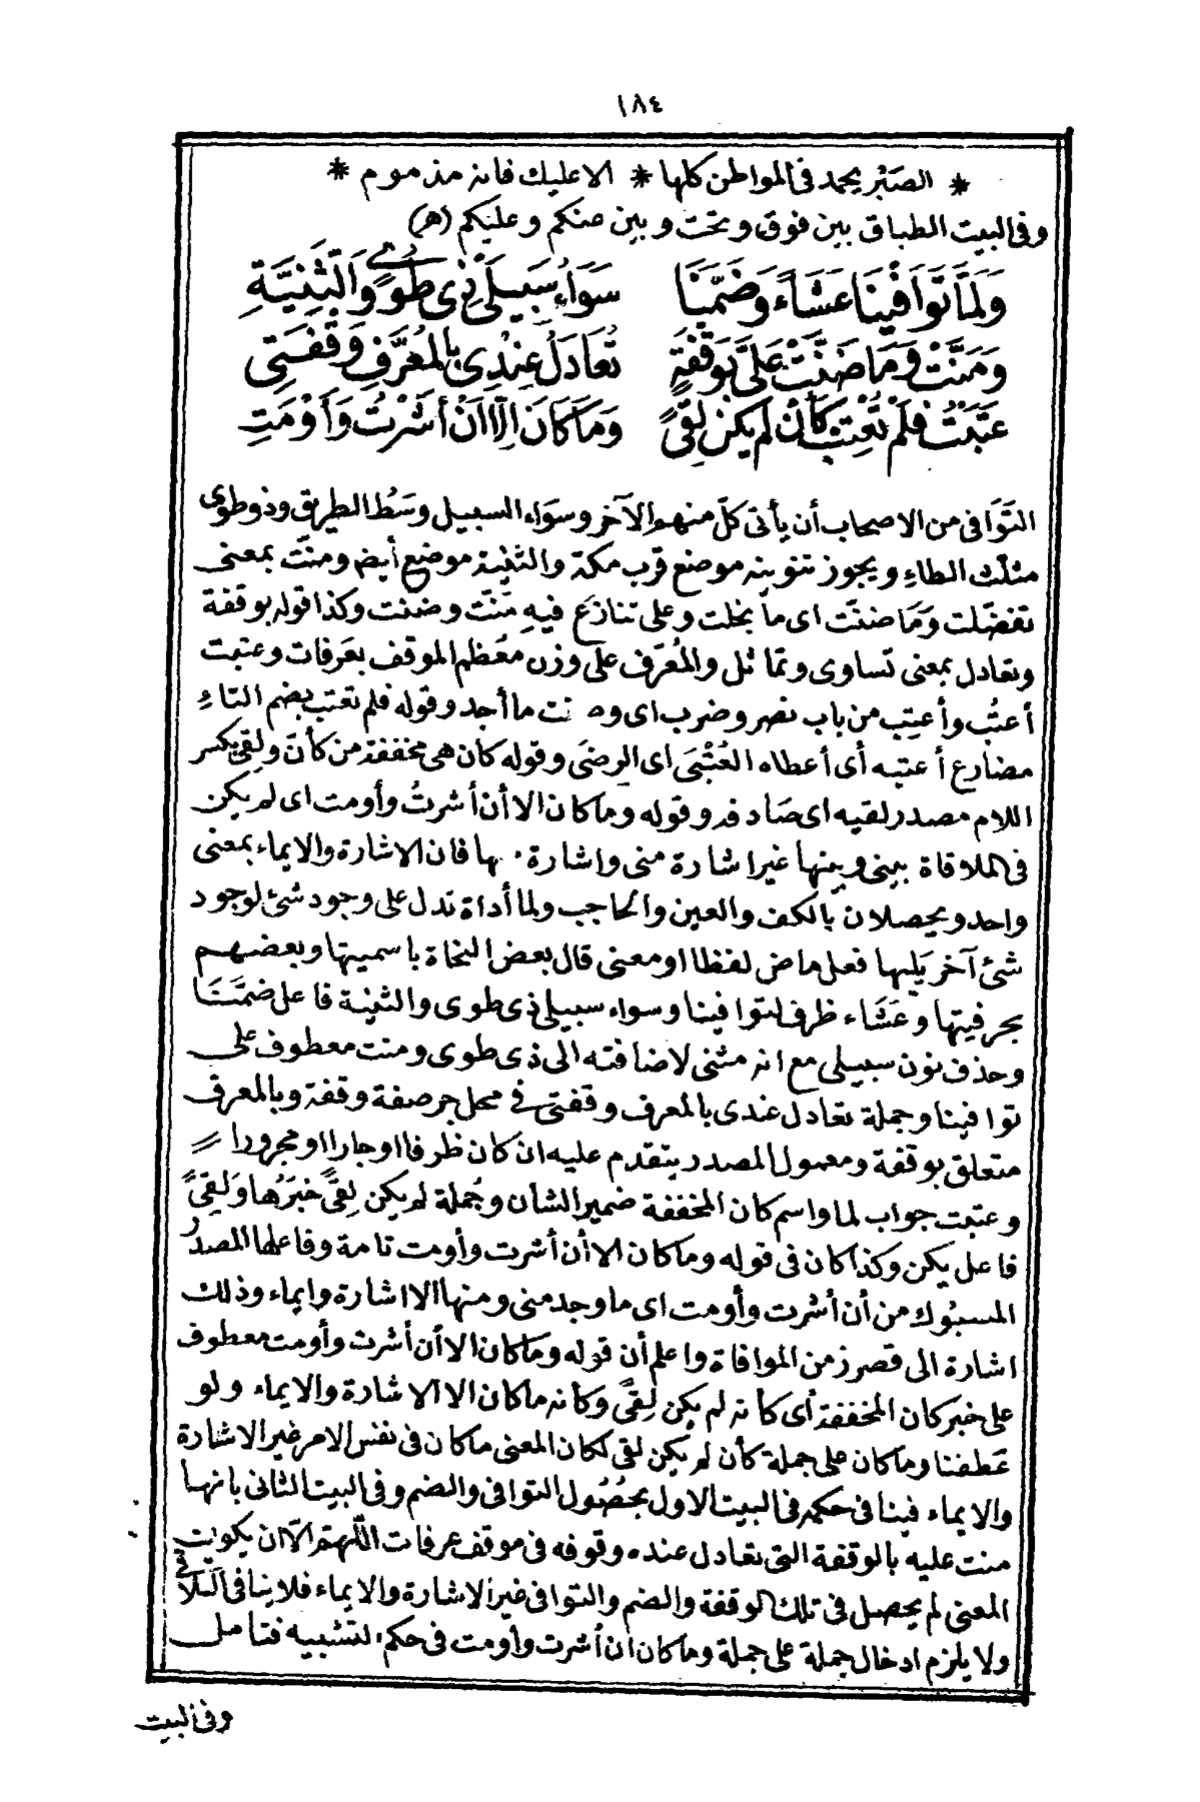 ١٨٤
* الصَبْر يحمد فى المواطن كلها * الا عليك فانه مذموم *
وفى البيت الطباق بين فوق وتحت وبين منكم وعليكم (هـ)
وَلَمَّا تَوَافَيْنَا عَشَاءً وَضَمَّنَا سَوَاءُ سَبِيلَىْ ذِى طُوًى وَالثَّنِيَّةِ
وَمَنَّتْ وَمَا ضَنَّتْ عَلَىَّ بِوَقْفَةٍ تُعَادَلُ عِنْدِى بِالْمُعَرَّفِ وَقْفَتِى
عَتَبْتُ فَلَمْ تُعْتِبْ كَأَنْ لَمْ يَكُنْ لِقًى وَمَا كَانَ اِلَّا اَنْ أَشَرْتُ وَأَوْمَتِ
التَوَافى من الاصحاب أن يأتى كلّ منهم الآخر وسوَاء السبيل وسَط الطريق وذو طوى
مثلّث الطاء ويجوز تنوينه موضع قرب مكة والثنية موضع أيضم ومنّت بمعنى
تفضّلت وَمَا ضنّت اى ما بخلت وعلى تنازع فيه منّت وضنت وكذا قوله بوقفة
وتعادل بمعنى تساوى وتماثل والمُعَرّف على وزن معُظم الموقف بعَرفات وعتبت
أعتُب وأعتِب من باب نصر وضرب اى و نت ما أجد وقوله فلم تعتب بضم التاء
مضارع أعتبه أى أعطاه العُتْبَى اى الرضَى وقوله كان هى مخففة من كأنّ ولقِى بكسر
اللام مصدر لقيه اى صَادفه وقوله وما كان الا أن أشرتُ وأومت اى لم يكن
فى الملاقاة بينى وبينها غير اشارة منى واشارة منها فان الاشارة والايماء بمعنى
واحد ويحصلان بالكف والعين والحاجب ولما أداة تدل على وجود شئ لوجود
شئ آخر يَليها فعل ماض لفظا او معنى قال بعض النحاة باسميتها وبعضهم
بحرفيتها وعَشَاء ظرف لتوافينا وسواء سبيلى ذى طوى والثنية فاعل ضمّنَا
وحذف نون سبيلى مع انه مثنى لاضافته الى ذى طوى ومنت معطوف على
توافينا وجملة تعادل عندى بالمعرف وقفتى فى محل جر صفة وقفة وبالمعرف
متعلق بوقفة ومعمول المصدر يتقدم عليه ان كان ظرفا او جارا او مجرورا
وعتبت جواب لما واسم كان المخففة ضمير الشان وجُملة لم يكن لِقىً خبَرُها وَلِقىً
فاعل يكن وكذا كان فى قوله وما كان الا أن أشرت وأومت تامة وفاعلها المصدرُ
المسبُوك من أن أشرت وأومت اى ما وجد منى ومنها الا اشارة وايماء وذلك
اشارة الى قصر زمن الموافاة واعلم أن قوله وما كان الا أن أشرت وأومت معطوف
على خبر كان المخففة أى كأنه لم يكن لِقىً وكأنه ما كان الا الاشارة والايماء ولو
عَطفنا وما كان على جملة كأن لم يكن لقى لكان المعنى ما كان فى نفس الامر غير الاشارة
والايماء فينافى حكمه فى البيت الاول بحصُول التوافى والضم وفى البيت الثانى بانها
منت عليه بالوقفة التى تعادل عنده وقوفه فى موقف عرفات اللّهمّ الّا ان يكون
المعنى لم يحصل فى تلك الوقفة والضم والتوافى غير الاشارة والايماء فلا ينافى التلاقى
ولا يلزم ادخال جملة على جملة وما كان ان أشرت وأومت فى حكم التشبيه فتامل
وفى البيت